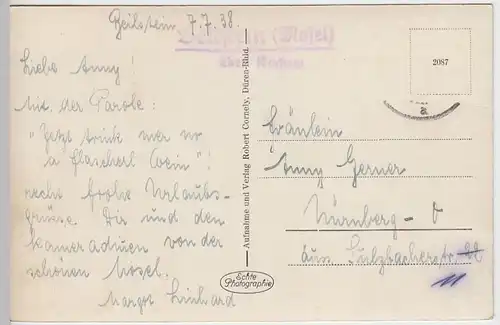 Beilstein, 7.7.38.
Beilstein (Mosel)
über
Liebe Anny!
Mit der Parole:
"Jetzt trink mer no
a Flascherl Wein"!
recht frohe Urlaubs-
grüsse. Dir und den
Kameradinen von der
schönen Mosel.
Margot Linhard
Aufnahme und Verlag Robert Cornely, Düren-Rhld.
Echte
Photographie
2087
a
Fräulein
Anny Gerner
Nürnberg-O
Sulzbacherstr.
11